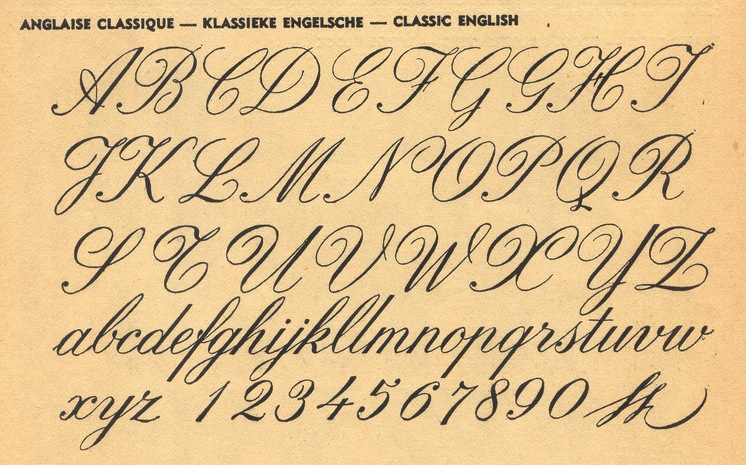 ANGLAISE CLASSIQUE — KLASSIEKE ENGELSCHE — CLASSIC ENGLISH
A B C D E F G G H I
J K L M N O P Q R
S T U V W X Y Z
abcdefghijkllmnopqrstuvw
xyz 1234567890